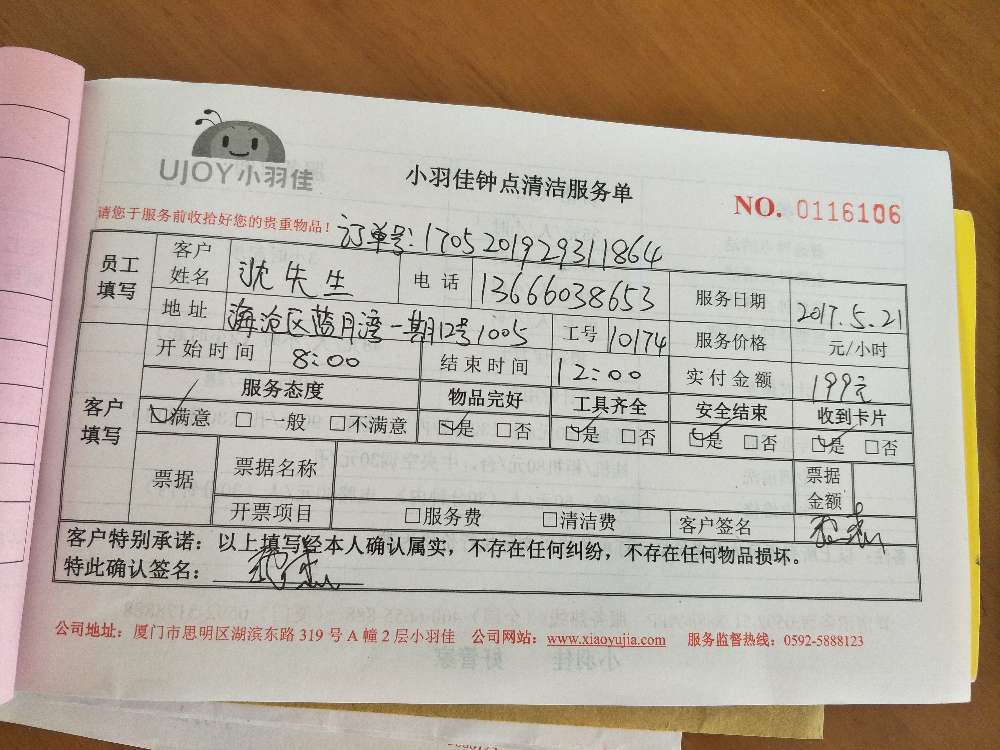 UJOY小羽佳
小羽佳钟点清洁服务单
NO. 0116106
请您于服务前收拾好您的贵重物品！
订单号:170520192931 1864
员工填写 客户姓名 沈先生 电话 13666038653 服务日期 2017.5.21
地址 海沧区蓝月湾一期12号1005 工号 10174 服务价格 元/小时
开始时间 8:00 结束时间 12:00 实付金额 199元
客户填写 服务态度 物品完好 工具齐全 安全结束 收到卡片
☑满意 □一般 □不满意 ☑是 □否 ☑是 □否 ☑是 □否 ☑是 □否
票据 票据名称 票据金额
开票项目 □服务费 □清洁费 客户签名
客户特别承诺：以上填写经本人确认属实，不存在任何纠纷，不存在任何物品损坏。
特此确认签名：
公司地址：厦门市思明区湖滨东路 319 号 A 幢 2 层小羽佳 公司网站：www.xiaoyujia.com 服务监督热线：0592-5888123